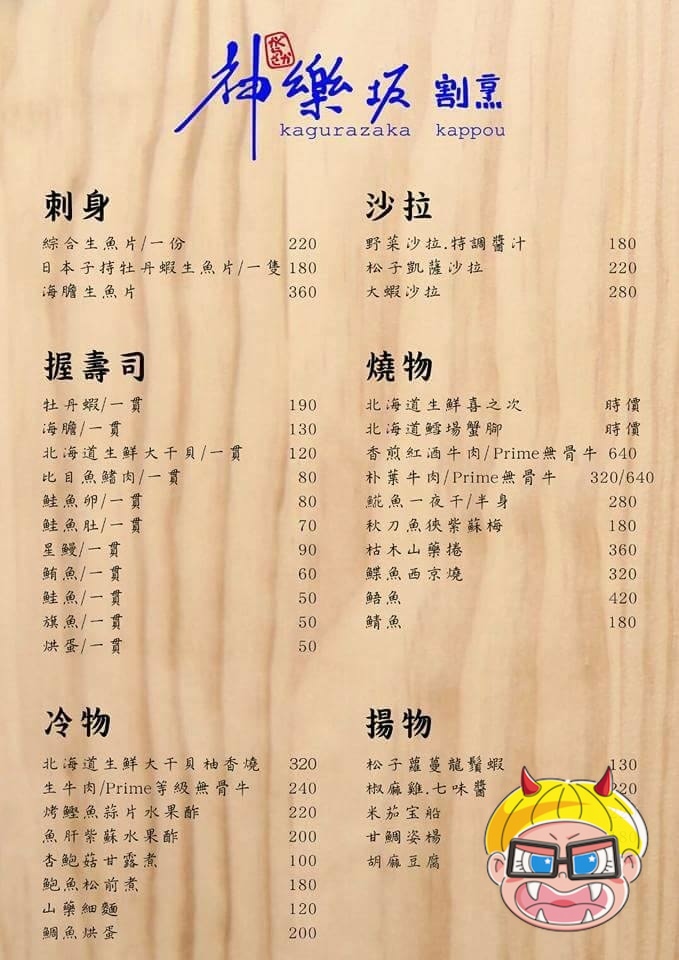 神樂坂 割烹
かぐらざか
kagurazaka kappou
刺身
綜合生魚片/一份 220
日本子持牡丹蝦生魚片/一隻 180
海膽生魚片 360
握壽司
牡丹蝦/一貫 190
海膽/一貫 130
北海道生鮮大干貝/一貫 120
比目魚鰭肉/一貫 80
鮭魚卵/一貫 80
鮭魚肚/一貫 70
星鰻/一貫 90
鮪魚/一貫 60
鮭魚/一貫 50
旗魚/一貫 50
烘蛋/一貫 50
冷物
北海道生鮮大干貝柚香燒 320
生牛肉/Prime等級無骨牛 240
烤鰹魚蒜片水果酢 220
魚肝紫蘇水果酢 200
杏鮑菇甘露煮 100
鮑魚松前煮 180
山藥細麵 120
鯛魚烘蛋 200
沙拉
野菜沙拉.特調醬汁 180
松子凱薩沙拉 220
大蝦沙拉 280
燒物
北海道生鮮喜之次 時價
北海道鱈場蟹腳 時價
香煎紅酒牛肉/Prime無骨牛 640
朴葉牛肉/Prime無骨牛 320/640
䱀魚一夜干/半身 280
秋刀魚挾紫蘇梅 180
枯木山藥捲 360
鰈魚西京燒 320
鯃魚 420
鯖魚 180
揚物
松子蘿蔓龍鬚蝦 130
椒麻雞.七味醬 220
米茄宝船
甘鯛姿楊
胡麻豆腐